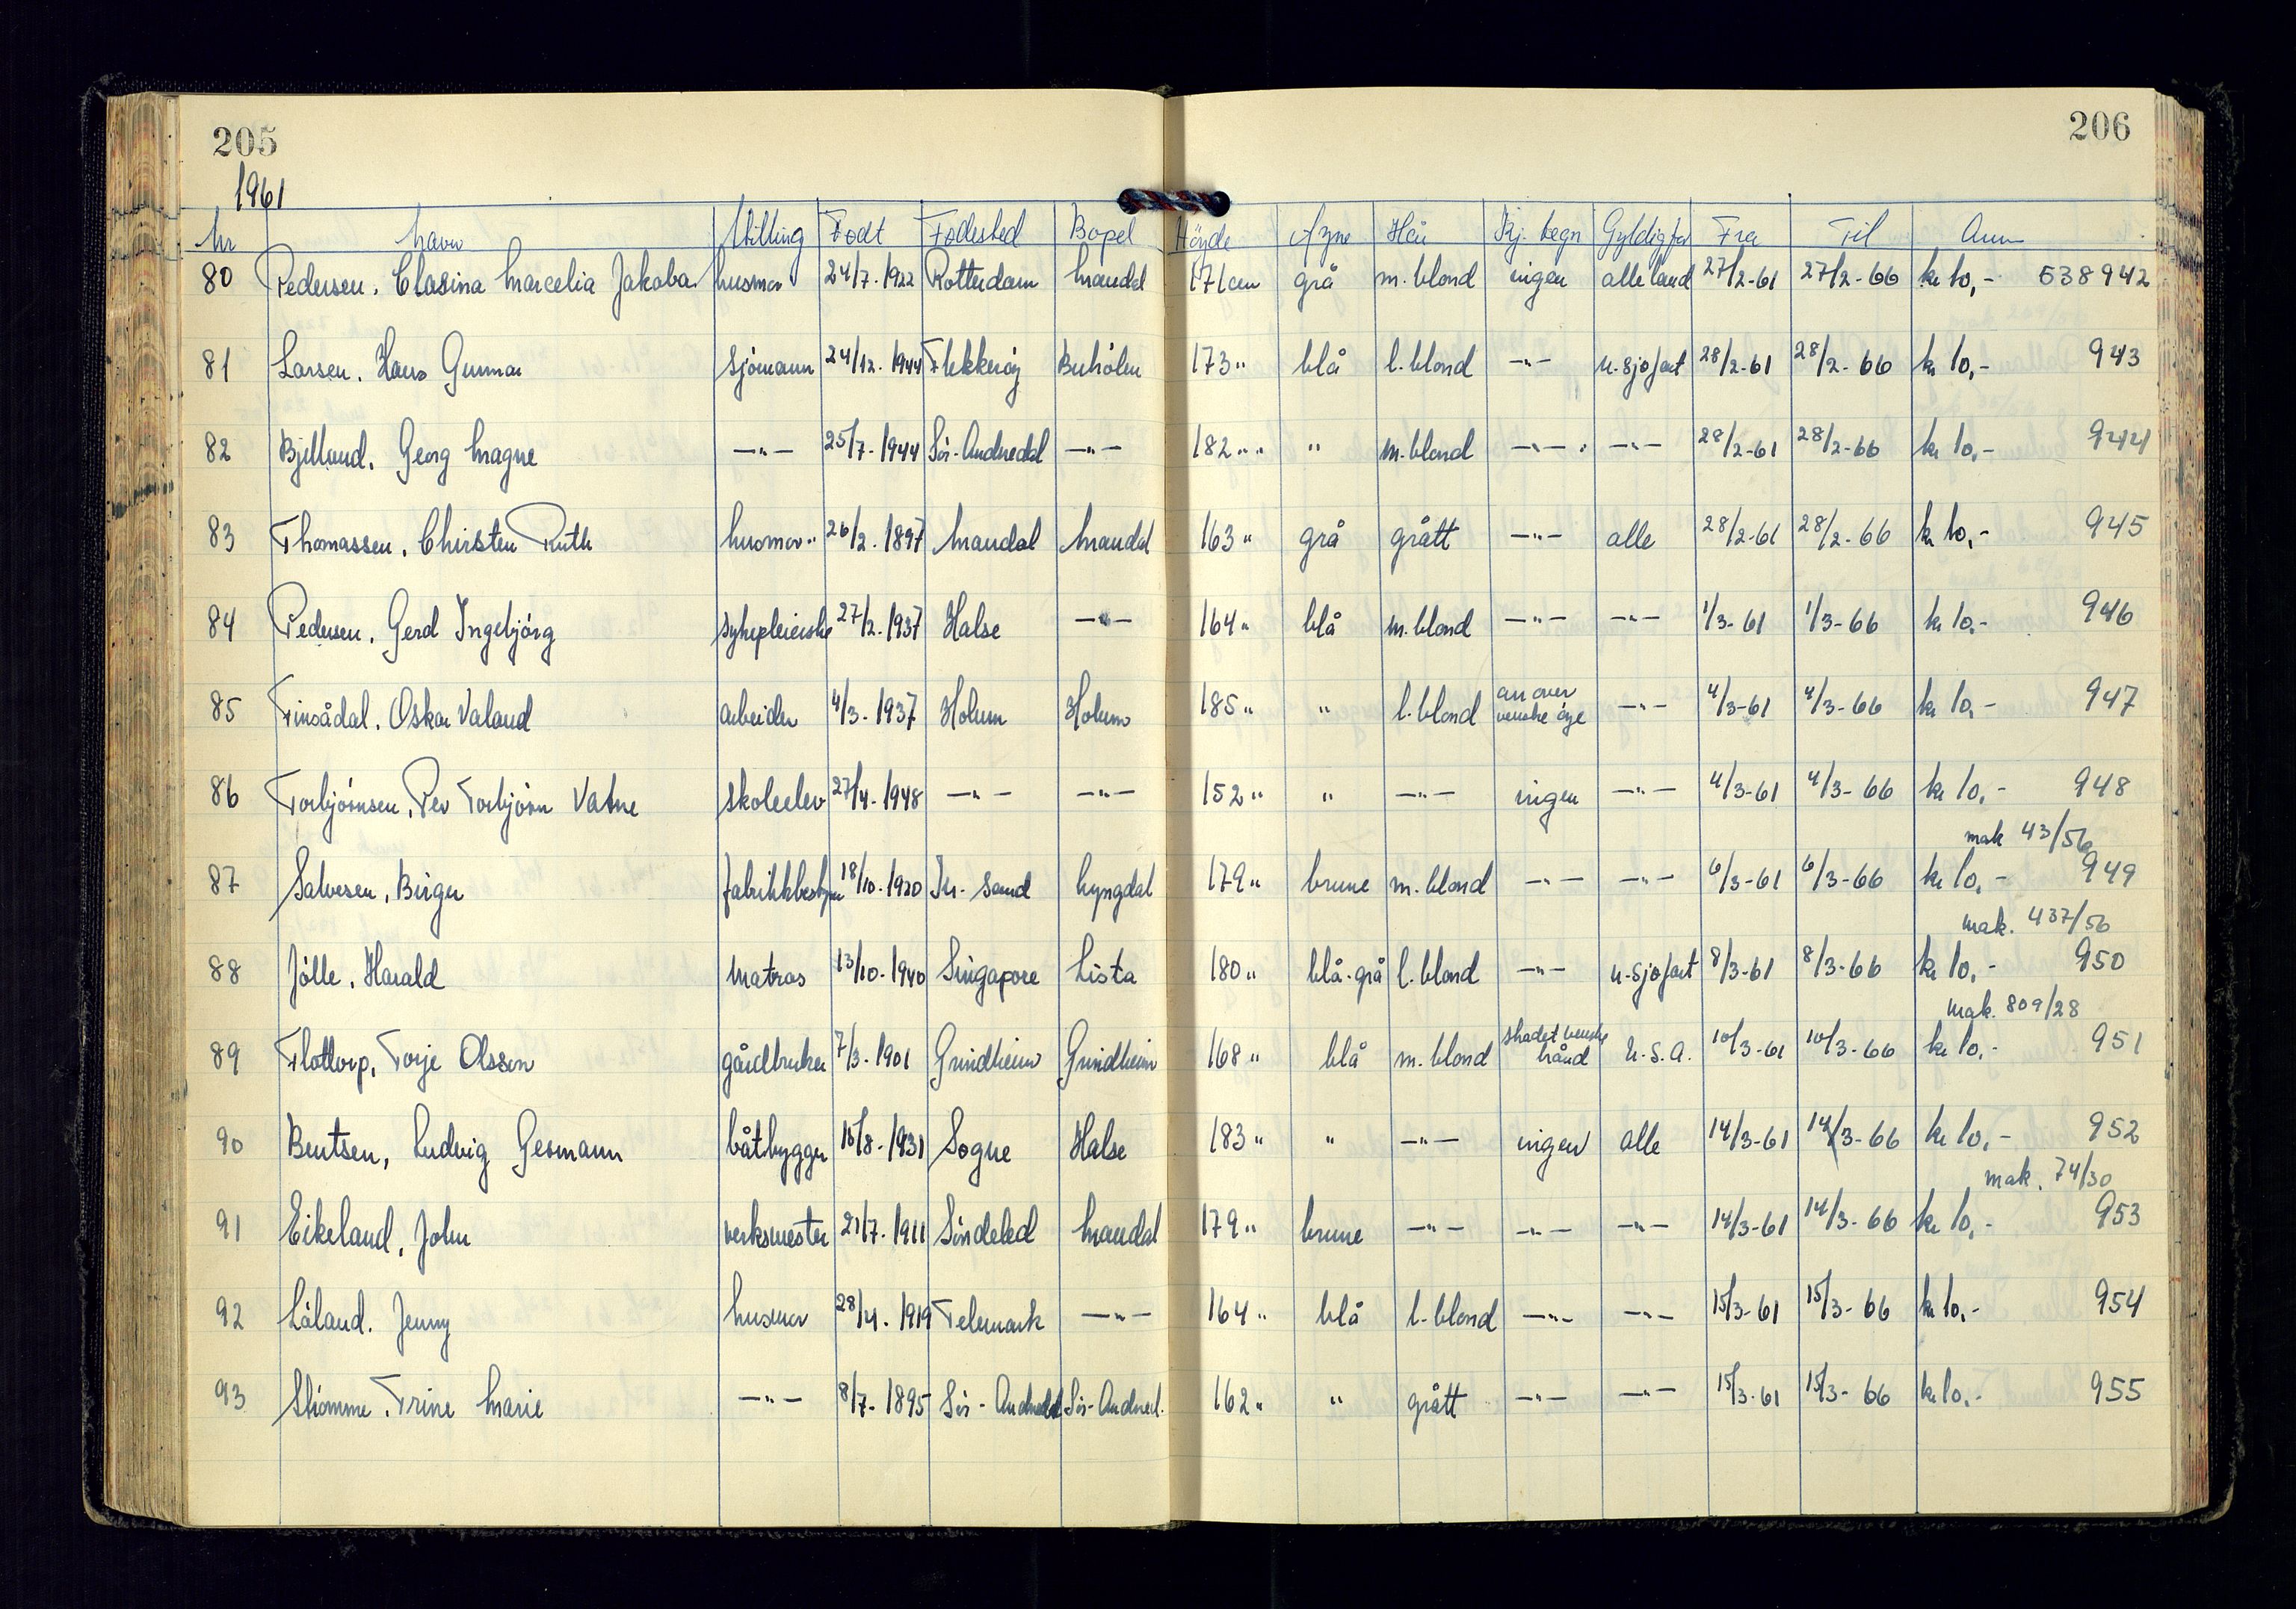 205
206
1961
Nr Navn Stilling Født Fødested Bopel Höyde Øyne Hår Kj. tegn Gyldig for Fra Til Anm
80 Pedersen, Clasina Marcelia Jakoba husmor 24/7-1922 Rotterdam Mandal 171 cm grå m. blond ingen alle land 27/2-61 27/2-66 kr 10,- 538942
81 Larsen, Hans Gunnar sjömann 24/12-1944 Flekkeröy Buhölm 173 " blå l. blond -"- u. sjøfart 28/2-61 28/2-66 kr 10,- 943
82 Bjelland, Georg Magne -"- 25/7-1944 Sör-Audnedal -"- 182 " " m. blond -"- -"- 28/2-61 28/2-66 kr 10,- 944
83 Thomassen, Christen Ruth husmor 26/2-1897 Mandal Mandal 163 " grå grått -"- alle 28/2-61 28/2-66 kr 10,- 945
84 Pedersen, Gerd Ingebjörg sykepleierske 27/2-1937 Halse -"- 164 " blå m. blond -"- -"- 1/3-61 1/3-66 kr 10,- 946
85 Finsådal, Oskar Valand arbeider 4/3-1937 Holum Holum 185 " " l. blond arr over venstre öye -"- 4/3-61 4/3-66 kr 10,- 947
86 Torbjörnsen, Per Torbjörn Vatne skoleelev 27/4-1948 -"- -"- 152 " " -"- ingen -"- 4/3-61 4/3-66 kr 10,- 948
mak 43/56
87 Salvesen, Birger fabrikkbestyrer 18/10-1920 Kr. sand Lyngdal 179 " brune m. blond -"- -"- 6/3-61 6/3-66 kr 10,- 949
mak. 437/56
88 Jölle, Harald Matros 13/10-1940 Singapore Lista 180 " blå-grå l. blond -"- u-sjøfart 8/3-61 8/3-66 kr 10,- 950
mak. 809/28
89 Flottorp, Torje Olssen gårdbruker 7/3-1901 Grindheim Grindheim 168 " blå m. blond skadet venstre hånd U.S.A. 10/3-61 10/3-66 kr 10,- 951
90 Bentsen, Ludvig Germann båtbygger 15/8-1931 Søgne Halse 183 " " -"- ingen alle 14/3-61 14/3-66 kr 10,- 952
mak. 74/30
91 Eikeland, John verksmester 21/7-1911 Söndeled Mandal 179 " brune -"- -"- -"- 14/3-61 14/3-66 kr 10,- 953
92 Låland, Jenny husmor 28/4-1919 Telemark -"- 164 " blå l. blond -"- -"- 15/3-61 15/3-66 kr 10,- 954
93 Strömme, Trine Marie -"- 8/7-1895 Sör-Audnedal Sör-Audned. 162 " " grått -"- -"- 15/3-61 15/3-66 kr 10,- 955